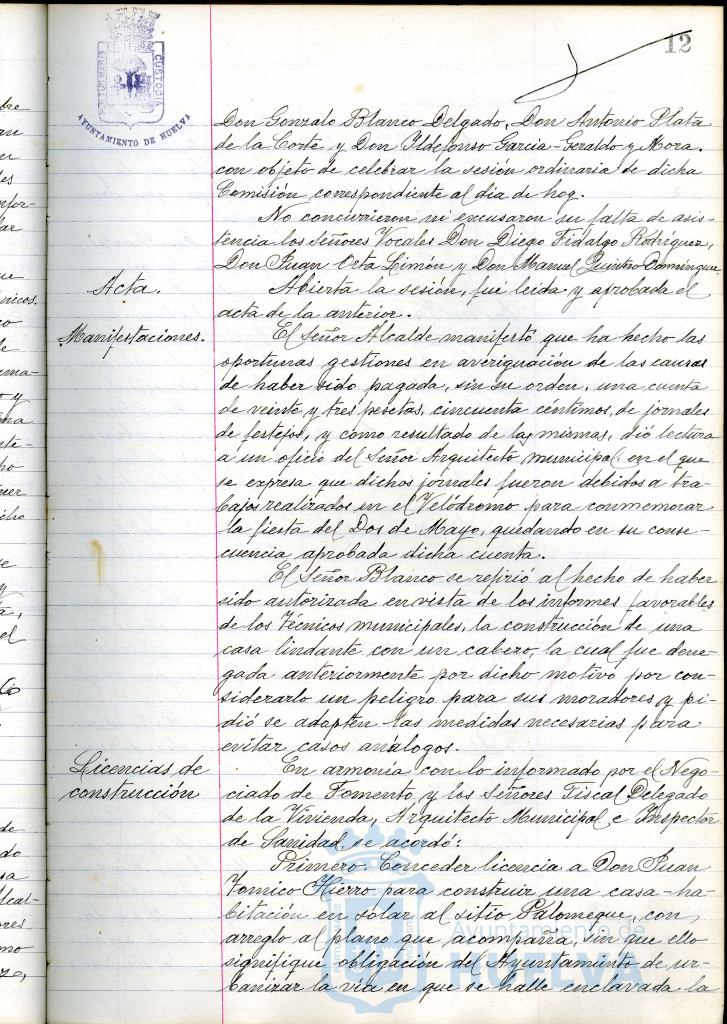 12
PORTUS MARIS ET TERRAE CUSTODIA
AYUNTAMIENTO DE HUELVA
Don Gonzalo Blanco Delgado, Don Antonio Plata
de la Corte y Don Ildefonso Garcia-Geraldo y Mora.
con objeto de celebrar la sesión ordinaria de dicha
Comisión correspondiente al dia de hoy.
No concurrieron ni excusaron su falta de asis-
tencia los Señores Vocales Don Diego Fidalgo Rodríguez,
Don Juan Orta Limón y Don Manuel Quintero Dominguez.
Acta.
Abierta la sesión, fué leida y aprobada el
acta de la anterior.
Manifestaciones.
El Señor Alcalde manifestó que ha hecho las
oportunas gestiones en averiguación de las causas
de haber sido pagada, sin su orden, una cuenta
de veinte y tres pesetas, cincuenta céntimos, de jornales
de festejos, y como resultado de las mismas, dió lectura
a un oficio del Señor Arquitecto municipal, en el que
se expresa que dichos jornales fueron debidos a tra-
bajos realizados en el Velódromo para conmemorar
la fiesta del Dos de Mayo, quedando en su conse-
cuencia aprobada dicha cuenta.
El Señor Blanco se refirió al hecho de haber
sido autorizada en vista de los informes favorables
de los Técnicos municipales, la construcción de una
casa lindante con un cabezo, la cual fue dene-
gada anteriormente por dicho motivo por con-
siderarlo un peligro para sus moradores y pi-
dió se adopten las medidas necesarias para
evitar casos análogos.
Licencias de
construcción
En armonia con lo informado por el Nego-
ciado de Fomento y los Señores Fiscal Delegado
de la Vivienda, Arquitecto Municipal e Inspector
de Sanidad, se acordó:
Primero: Conceder licencia a Don Juan
Tomico Hierro para construir una casa-ha-
bitación en solar al sitio Palomeque, con
arreglo al plano que acompaña, sin que ello
signifique obligación del Ayuntamiento de ur-
banizar la via en que se halle enclavada la
Ayuntamiento de
HUELVA